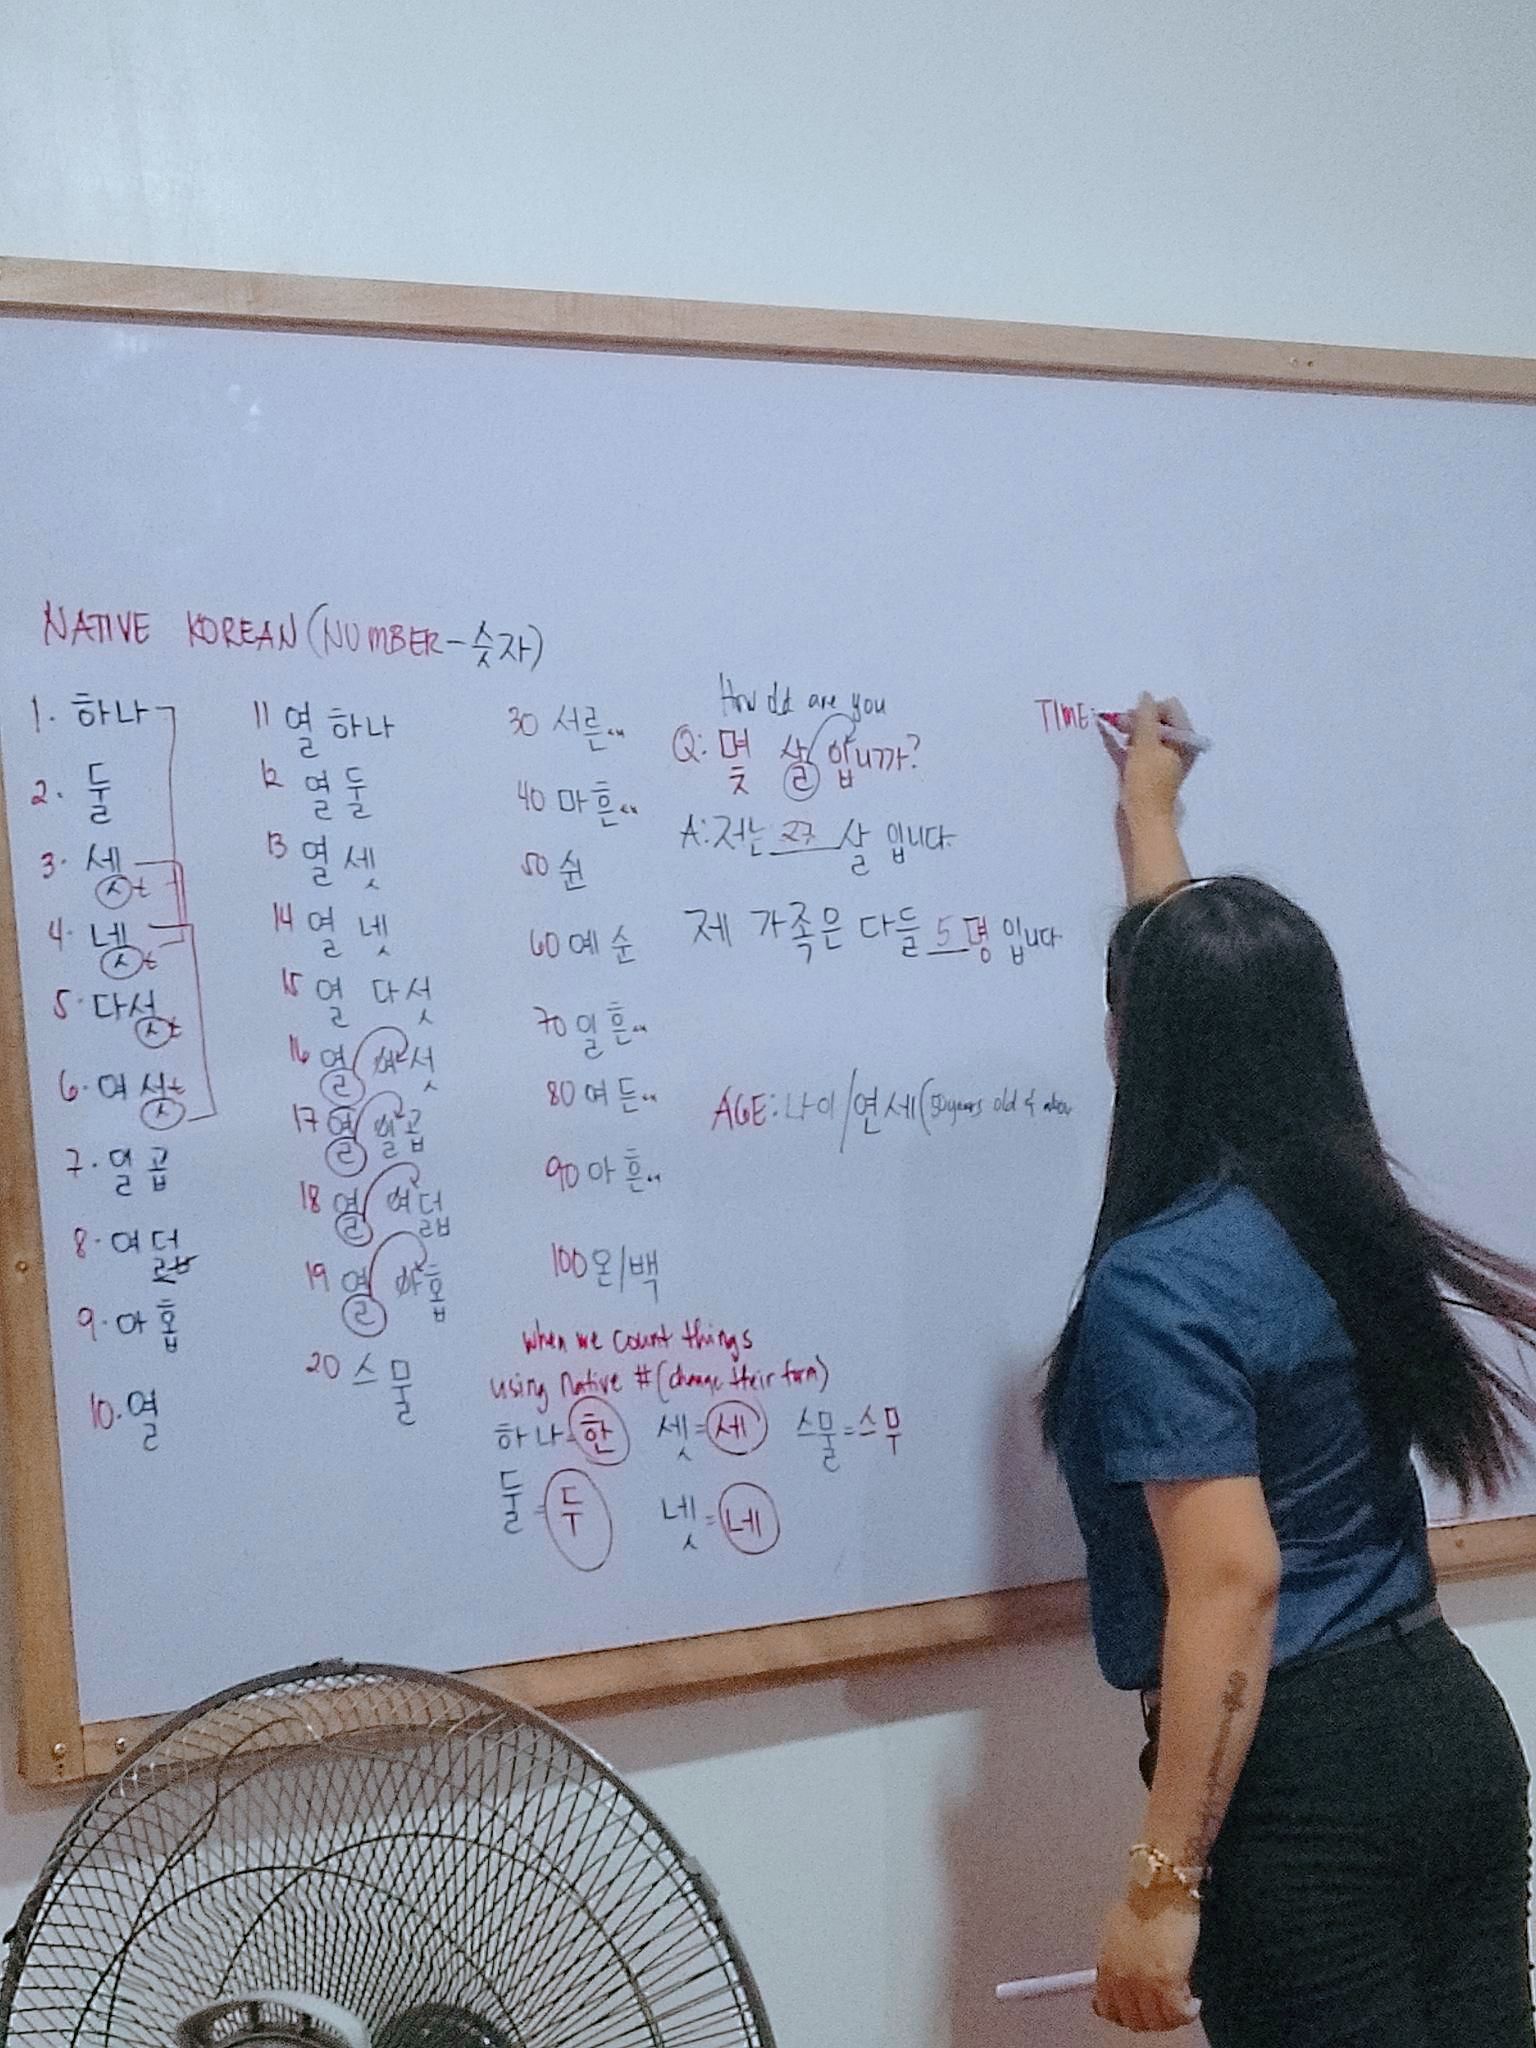 NATIVE KOREAN (NUMBER -숫자)
1. 하나
2. 둘
3. 셋 t
4. 넷 t
5. 다섯 t
6. 여섯 t
7. 일곱
8. 여덟
9. 아홉
10. 열
11 열 하나
12 열 둘
13 열 셋
14 열 넷
15 열 다섯
16 열 여섯
17 열 일곱
18 열 여덟
19 열 아홉
20 스물
30 서른
40 마흔
50 쉰
60 예순
70 일흔
80 여든
90 아흔
100 온/백
How old are you
Q: 몇 살 입니까?
A: 저는 27 살 입니다.
제 가족은 다들 5 명 입니다
AGE: 나이/연세 (50 years old &
when we count things
using native # (change their form)
하나 = 한 셋 = 세 스물 = 스무
둘 = 두 넷 = 네
TIME: